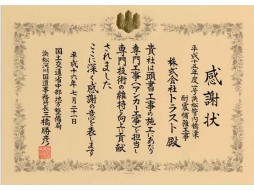 感謝状
平成十五年度一号浜松管内橋梁
耐震補強工事
株式会社トラスト殿
貴社は頭書工事の施工にあたり
専門工事(アンカー工事)を担当し
専門技術の維持と向上に貢献
されました
ここに深く感謝の意を表します
平成十六年七月二十一日
国土交通省中部地方整備局
浜松河川国道事務所長三橋勝彦